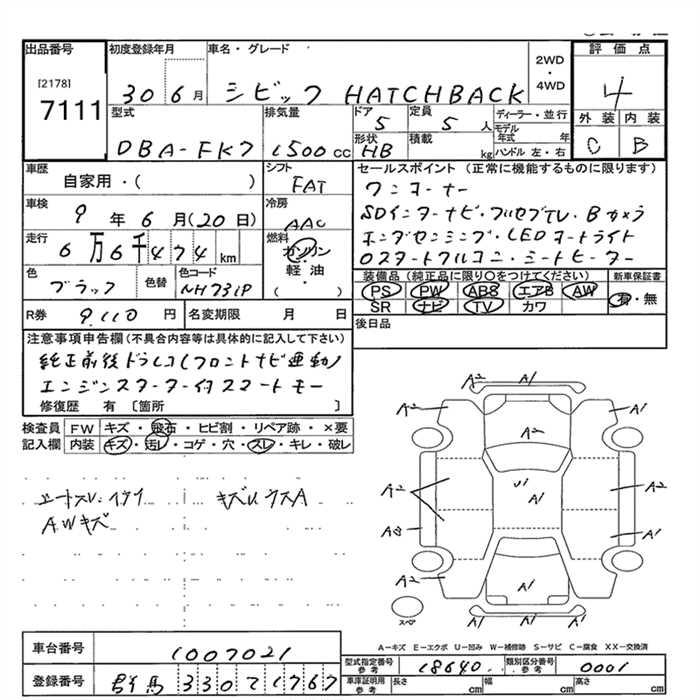 出品番号 初度登録年月 車名・グレード 評価点
[2178] 2WD・4WD
7111 30 6月 シビック HATCHBACK 4
型式 排気量 ドア 定員 ディーラー・並行 外装 内装
5 5人 モデル年式 年
DBA-FK7 1500cc 形状 HB 積載 kg ハンドル 左・右 C B
車歴 シフト セールスポイント (正常に機能するものに限ります)
自家用・( ) FAT ワンオーナー
車検 冷房 SDインターナビ・フルセグTV・Bカメラ
9年6月(20日) AAC ホンダセンシング・LEDオートライト
走行 燃料
6万6千474km ガソリン・軽油・( ) シートヒーター
色 色替 色コード 装備品 (純正品に限り○をつけてください) 新車保証書
ブラック NH731P PS PW ABS エアB AW 有・無
SR ナビ TV カワ
R券 9,110円 名変期限 月 日 後日品
注意事項申告欄(不具合内容等は具体的に記入して下さい)
純正前後ドラレコ(フロントナビ連動)
エンジンスターター付スマートキー
修復歴 有 〔箇所 〕
検査員 FW キズ・飛石・ヒビ割・リペア跡・×要
記入欄 内装 キズ・汚レ・コゲ・穴・スレ・キレ・破レ
AWキズ
A2 A1 A1
A2 A1
A2
A2 U1 A1 A2
A3 A1
A2 A1
A1 A1
スペア
A-キズ E-エクボ U-凹み W-補修跡 S-サビ C-腐食 XX-交換済
車台番号 1007021
型式指定番号 参考 18640 類別区分番号 参考 0001
登録番号 群馬 330 て 1767
車庫証明用 参考 長さ cm 幅 cm 高さ cm